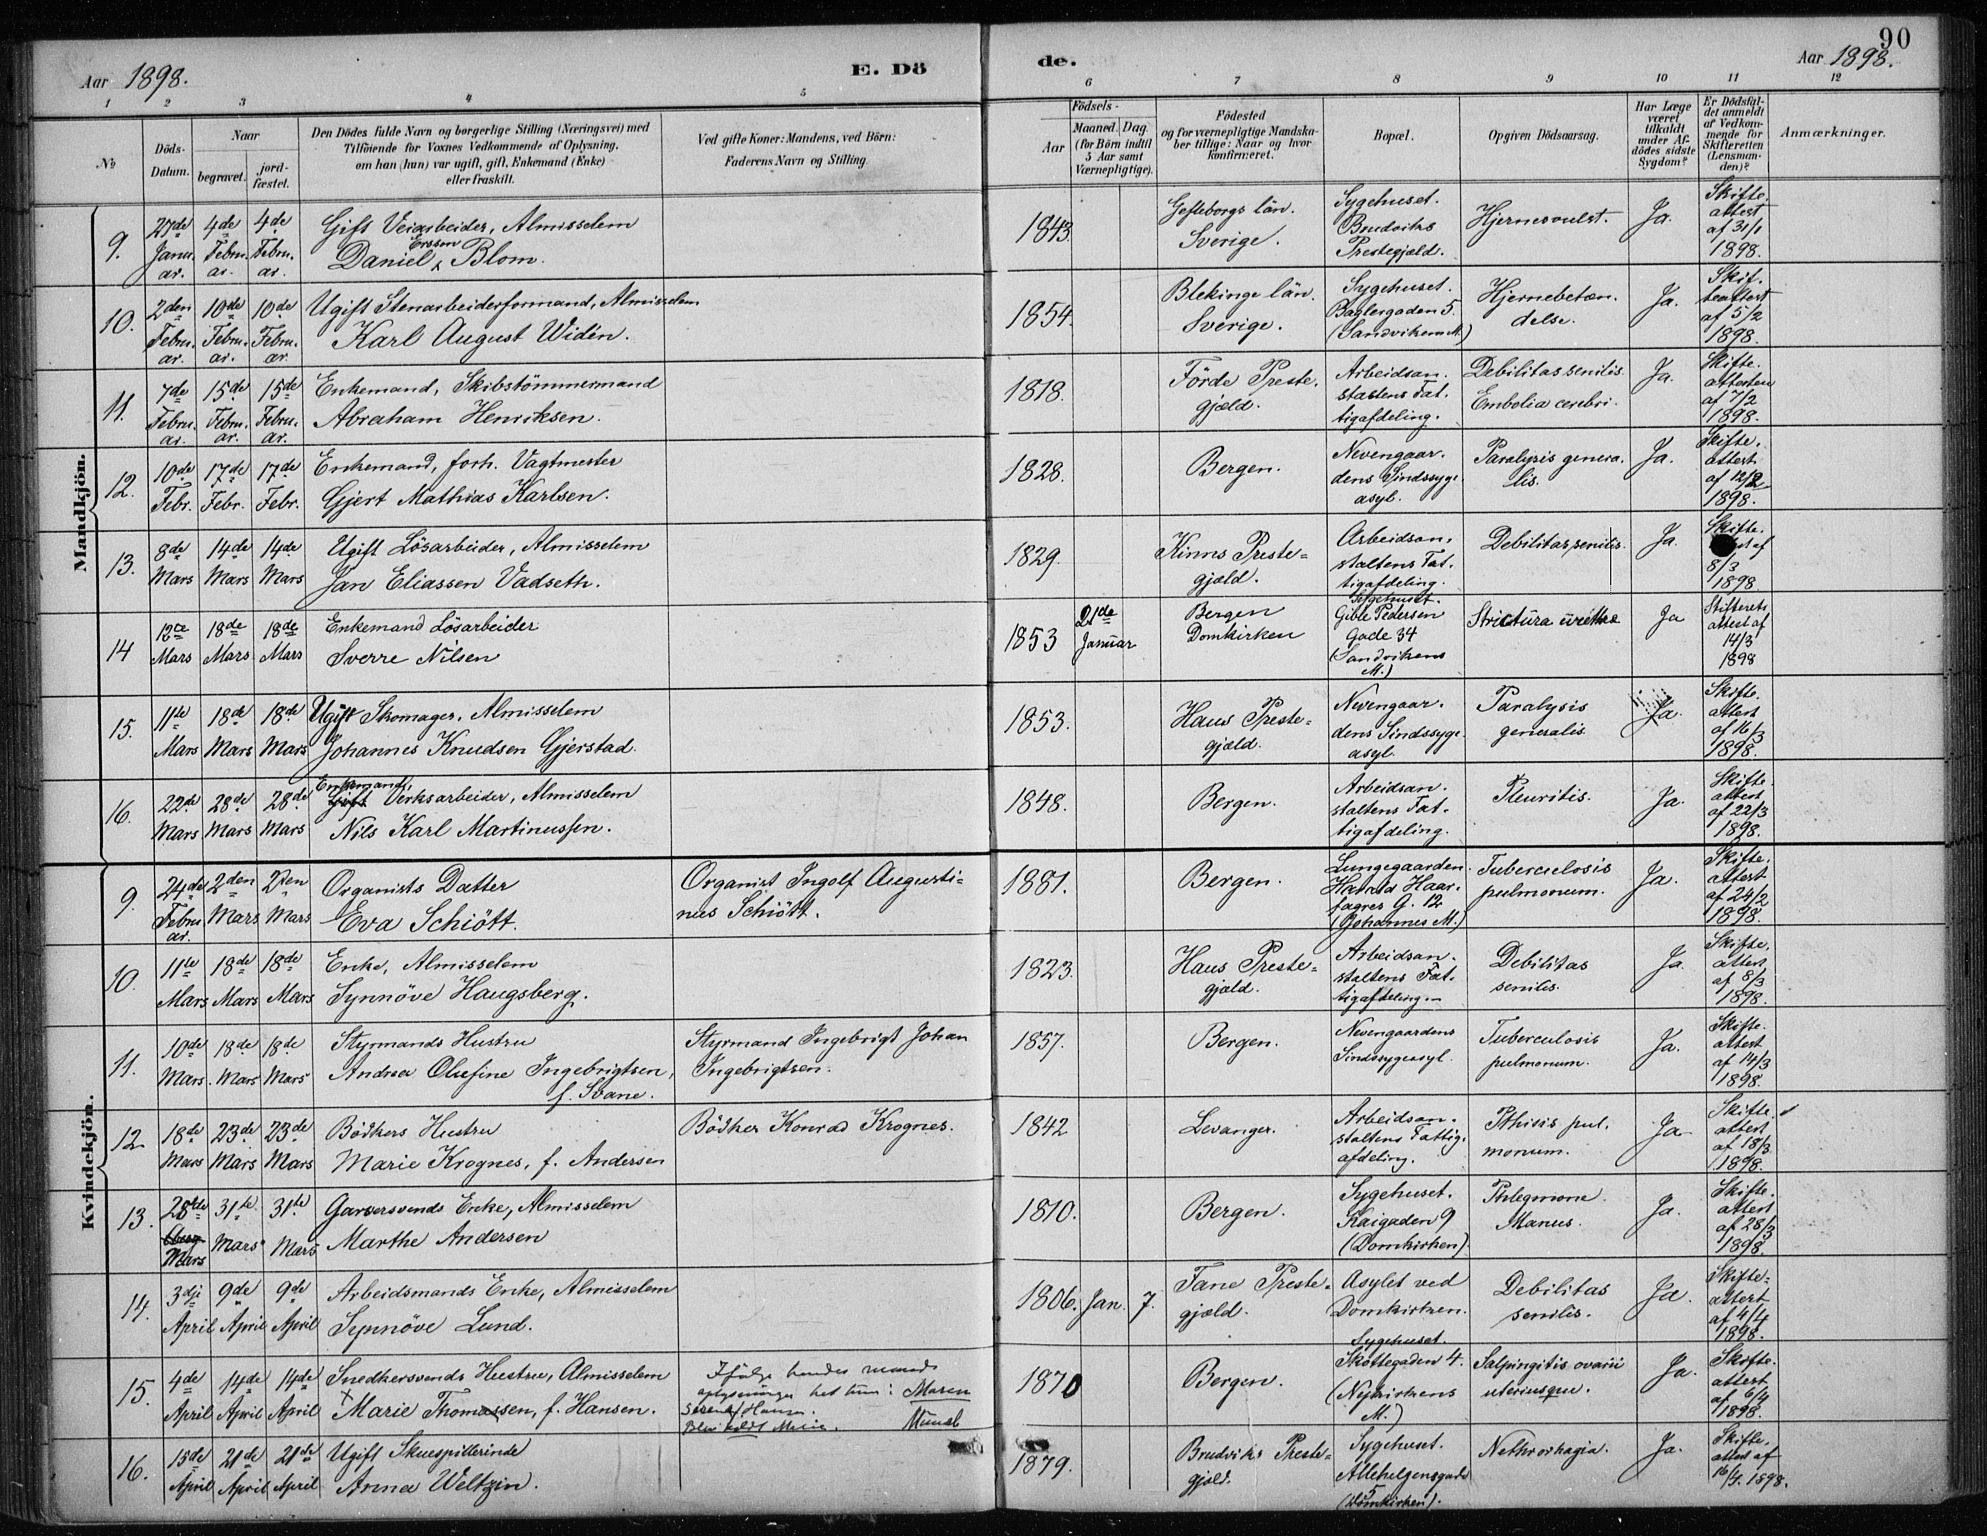 90
Aar 1898.
E. Dö
de.
Aar 1898.
1 2 3 4 5 6 7 8 9 10 11 12
No
Döds-Datum.
Naar
begravet.
jord-fæstet.
Den Dödes fulde Navn og borgerlige Stilling (Næringsvei) med
Tilföiende for Voxnes Vedkommende af Oplysning,
om han (hun) var ugift, gift, Enkemand (Enke)
eller fraskilt.
Ved gifte Koner: Mandens, ved Börn:
Faderens Navn og Stilling.
Födsels-
Aar
Maaned. Dag.
(for Börn indtil
5 Aar samt
Værnepligtige).
Födested
og for værnepligtige Mandska-
ber tillige: Naar og hvor
konfirmeret.
Bopæl.
Opgiven Dödsaarsag.
Har Læge
været
tilkaldt
under Af-
dödes sidste
Sygdom?
Er Dödsfal-
det anmeldt
af Vedkom-
mende for
Skifteretten
(Lensman-
den)?
Anmærkninger.
Mandkjön.
9. 27de Januar. 4de Februar. 4de Februar.
Gift Veiarbeider, Almisselem
Ersson
Daniel Blom.
1843. Gefleborgs län. Sverige. Sygehuset. Brudviks Prestegjæld. Hjernesvulst. Ja. Skifteattest af 31/1 1898.
10. 2den Februar. 10de Februar. 10de Februar.
Ugift Stenarbeiderformand, Almisselem
Karl August Widén.
1854. Blekinge län. Sverige. Sygehuset. Baglergaden 5. (Sandvikens M.) Hjernebetændelse. Ja. Skifteattest af 5/2 1898.
11. 7de Februar. 15de Februar. 15de Februar.
Enkemand, Skibstömmermand
Abraham Henriksen.
1818. Förde Prestegjæld. Arbeidsanstaltens Fattigafdeling. Debilitas senilis. Embolia cerebri. Ja. Skifteattesten af 7/2 1898.
12. 10de Febr. 17de Febr. 17de Febr.
Enkemand, forh. Vagtmester
Gjert Mathias Karlsen.
1828. Bergen. Nevengaardens Sindssygeasyl. Paralysis generalis. Ja. Skifteattest af 12/2 1898.
13. 8de Mars 14de Mars 14de Mars
Ugift Lösarbeider, Almisselem
Jan Eliassen Vadseth.
1829. Kinns Prestegjæld. Arbeidsanstaltens Fattigafdeling. Debilitas senilis. Ja. Skifte. af 8/3 1898
14 12te Mars 18de Mars 18de Mars
Enkemand Lösarbeider
Sverre Nilsen
1853 21de Januar Bergen Domkirken Sygehuset. Gible Pedersen Gade 34 (Sandvikens M.) Strictura urethræ Ja Skifterets attest af 14/3 1898
15. 11te Mars 18de Mars 18de Mars
Ugift Skomager, Almisselem
Johannes Knudsen Gjerstad.
1853. Haus Prestegjæld. Nevengaardens Sindssygeasyl. Paralysis generalis. Ja. Skifteattest af 16/3 1898.
16. 22de Mars 28de Mars 28de Mars
Enkemand,
Gift Verksarbeider, Almisselem
Nils Karl Martinussen.
1848. Bergen. Arbeidsanstaltens Fattigafdeling. Pleuritis. Ja. Skifteattest af 22/3 1898.
Kvindekjön.
9. 24de Februar. 2den Mars 2den Mars
Organists Datter
Eva Schiött.
Organist Ingolf Augustinus Schiött.
1881. Bergen. Lungegaarden. Harald Haarfagres G. 12 (Johannes M.) Tuberculosis pulmonum. Ja. Skifteattest af 24/2 1898.
10. 11te Mars 18de Mars 18de Mars
Enke, Almisselem
Synnöve Haugsberg.
1823. Haus Prestegjæld. Arbeidsanstaltens Fattigafdeling. Debilitas senilis. Ja. Skifteattest af 8/3 1898.
11. 10de Mars. 18de Mars 18de Mars
Styrmands Hustru
Andrea Olufine Ingebrigtsen,
f. Svane.
Styrmand Ingebrigt Johan Ingebrigtsen.
1857. Bergen. Nevengaardens Sindssygeasyl. Tuberculosis pulmonum. Ja. Skifteattest af 14/3 1898.
12. 18de Mars 23de Mars 23de Mars
Bödkers Hustru
Marie Krognes, f. Andersen
Bödker Konrad Krognes.
1842 Levanger. Arbeidsanstaltens Fattigafdeling. Pthisis pulmonum. Ja Skifteattest af 18/3 1898.
13. 28de Mars 31te Mars 31te Mars
Garversvends Enke, Almisselem
Marthe Andersen
1810. Bergen. Sygehuset. Kaigaden 9 (Domkirken). Phlegmone Manus. Ja. Skifteattest af 28/3 1898.
14. 3dj April 9de April 9de April
Arbeidsmands Enke, Almisselem
Synnöve Lund.
1806. Jan. 7. Fane Prestegjæld. Asylet ved Domkirken. Debilitas senilis. Ja. Skifteattest af 4/4 1898.
15. 4de April 14de April 14de April
Snedkersvends Hustru, Almisselem
Marie Thomassen, f. Hansen.
Ifölge hendes mands
oplysninger het hun: Maren
Hansen.
Blev kaldt Marie.
1870 Bergen. Sygehuset. Skottegaden 4. (Nykirkens M.) Salpingitis ovarii uteriusque. Ja. Skifteattest af 6/4 1898.
16. 15de April 21de April 21de April
Ugift Skuespillerinde
Anna Weltzin.
1879. Brudviks Prestegjæld. Sygehuset. Allehelgensgade 5 (Domkirken). Nethrorhagia. Ja. Skifteattest af 16/4. 1898.